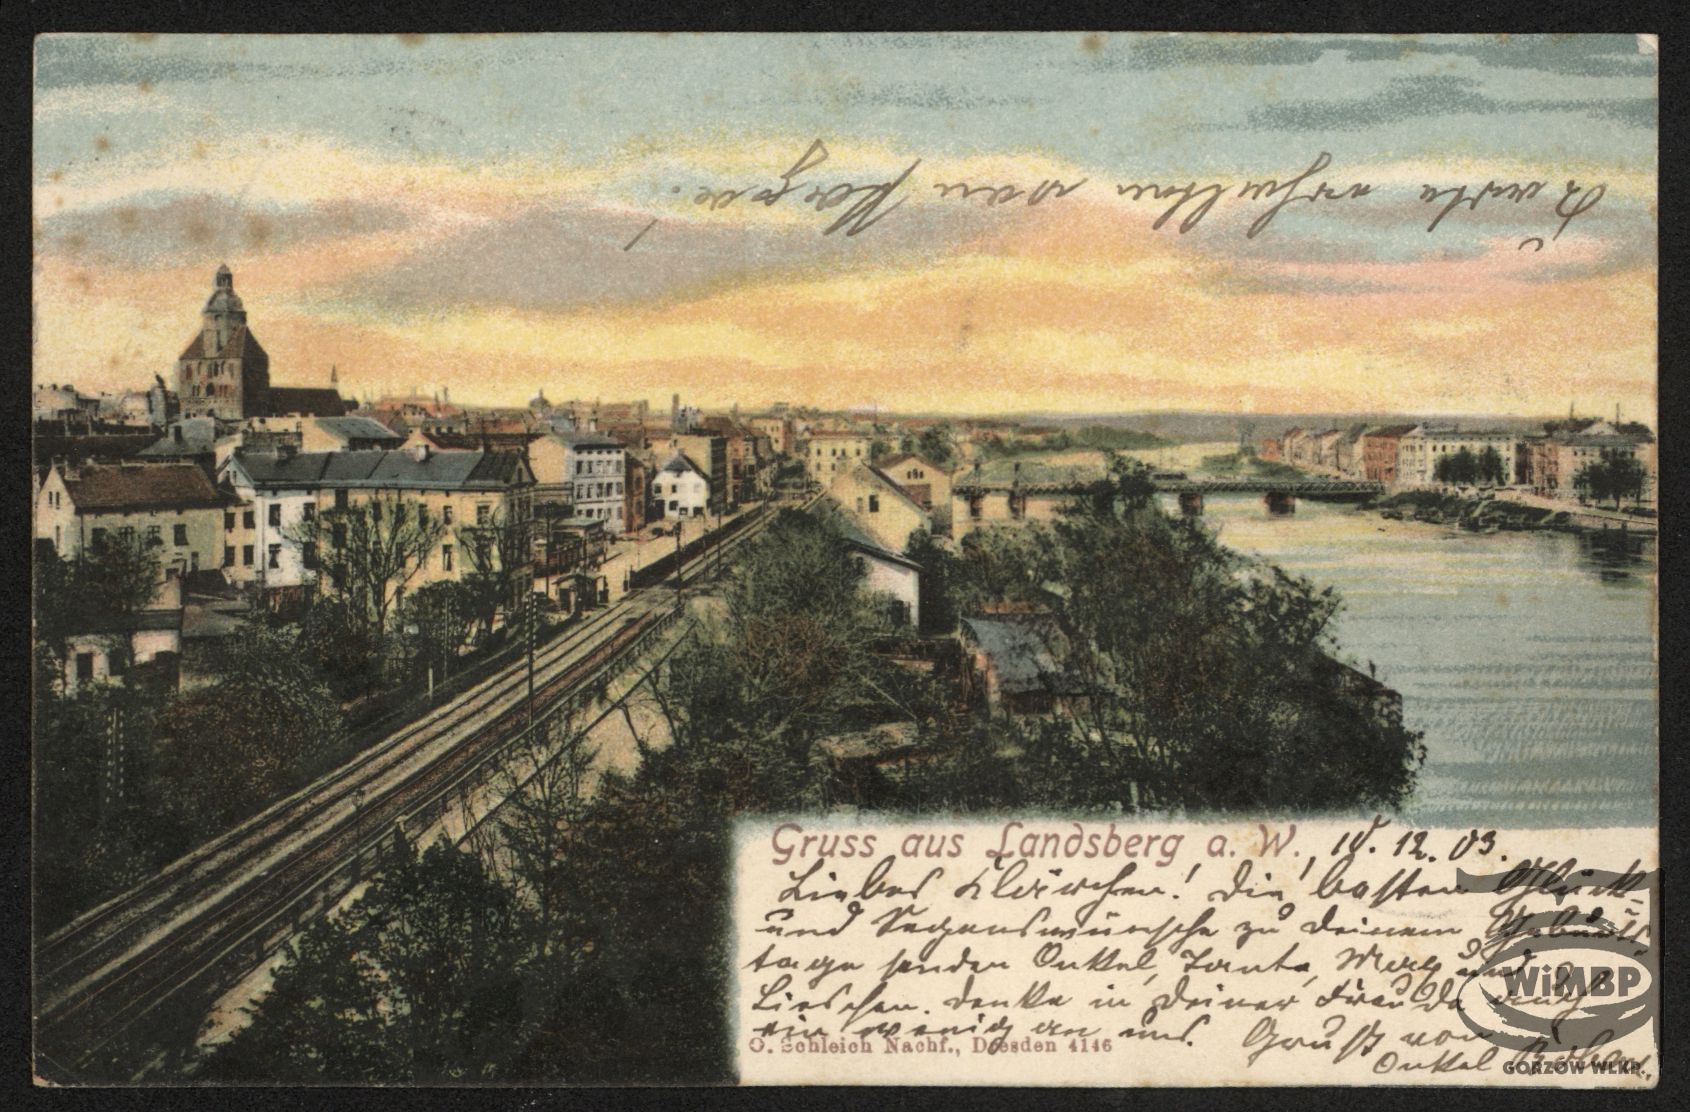 Karte erhalten von Margot!
Gruss aus Landsberg a. W., 10. 12. 03.
Liebes Klärchen! Die besten Glück-
und Segenswünsche zu Deinem Geburts
tage senden Onkel, Tante, und
Lieschen. Denke in Deiner Freude auch
ein wenig an uns. Gruß von
O. Schleich Nachf., Dresden 4146
Onkel
WiMBP
GORZÓW WLKP.